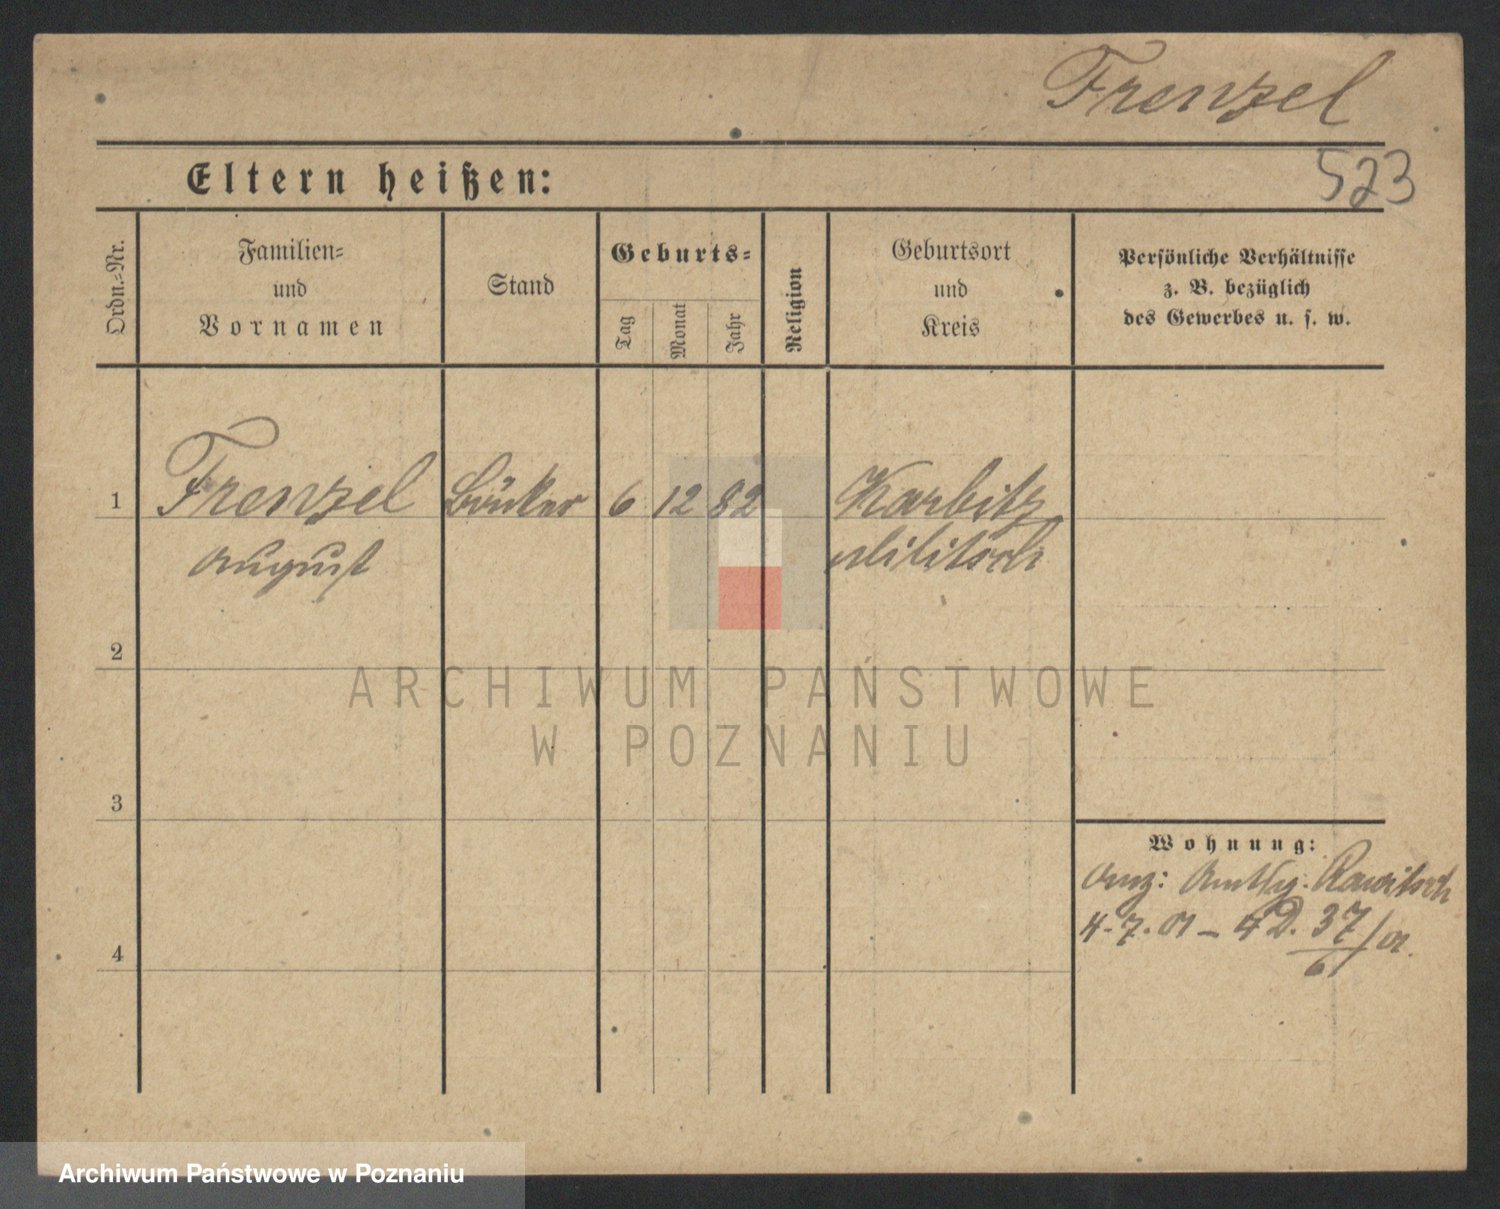 Frenzel
523
Eltern heißen:
Ordn.-Nr.
Familien-
und
Vornamen
Stand
Geburts-
Tag
Monat
Jahr
Religion
Geburtsort
und
Kreis
Persönliche Verhältnisse
z. B. bezüglich
des Gewerbes u. s. w.
1
Frenzel
August
6
12
82
Karbitz
Militsch
2
3
4
Wohnung:
Rawitsch
4.7.01 – 4 D. 37/01.
6
ARCHIWUM PAŃSTWOWE
W POZNANIU
Archiwum Państwowe w Poznaniu